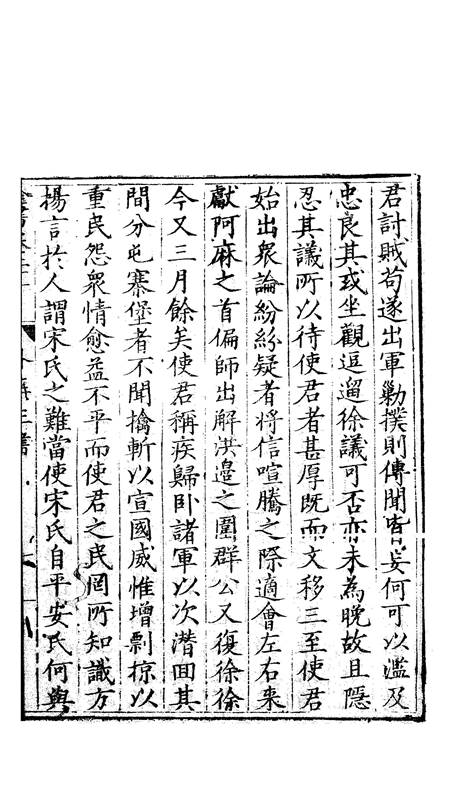 君討賊苟遂出軍勦撲則傳聞皆妄何可以濫及
忠良其或坐觀逗遛徐議可否亦未為晚故且隱
忍其議所以待使君者甚厚既而文移三至使君
始出衆論紛紛疑者將信喧騰之際適會左右來
獻阿麻之首偏師出解洪邊之圍群公又復徐徐
今又三月餘矣使君稱疾歸卧諸軍以次潛回其
間分屯寨堡者不聞擒斬以宣國威惟增剽掠以
重民怨衆情愈益不平而使君之民罔所知識方
揚言於人謂宋氏之難當使宋氏自平安氏何與